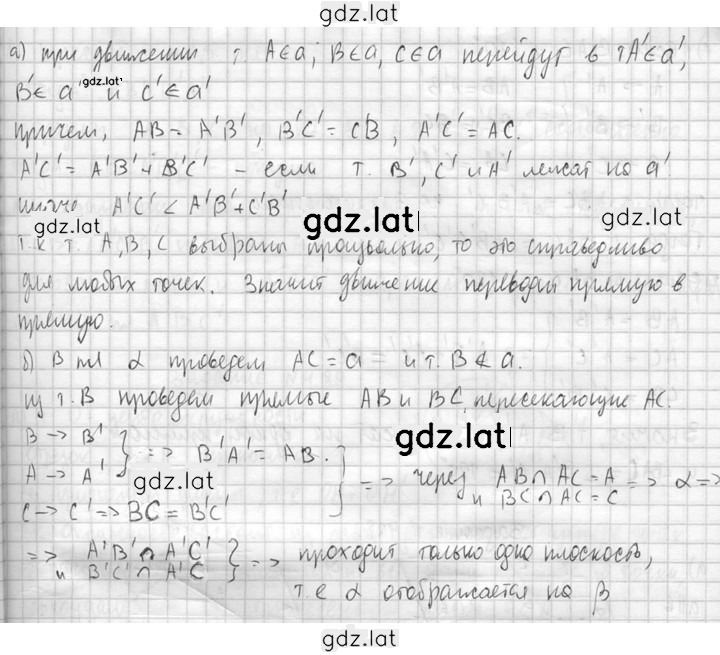 gdz.lat
а) при движении т A∈a, B∈a, C∈a перейдут в тA'∈a',
gdz.lat
B'∈ a' и C'∈a'
причем, AB = A'B', B'C' = CB, A'C' = AC.
A'C' = A'B' + B'C' – если т. B', C' и A' лежат на a'
иначе A'C' < A'B'+C'B'
gdz.lat gdz.lat gdz.lat
т.к т. A, B, C выбраны произвольно, то это справедливо
для любых точек. Значит движение переводит прямую в
прямую.
б) В пл α проведем AC = a и т. B ∉ a.
из т. B проведем прямые AB и BC, пересекающие AC.
B → B'
A → A' } => B'A' = AB.
gdz.lat gdz.lat
C → C' => BC = B'C' } => через AB ∩ AC = A и BC ∩ AC = C => α =>
=> A'B' ∩ A'C' и B'C' ∩ A'C } => проходит только одна плоскость,
т.е α отображается на β
gdz.lat